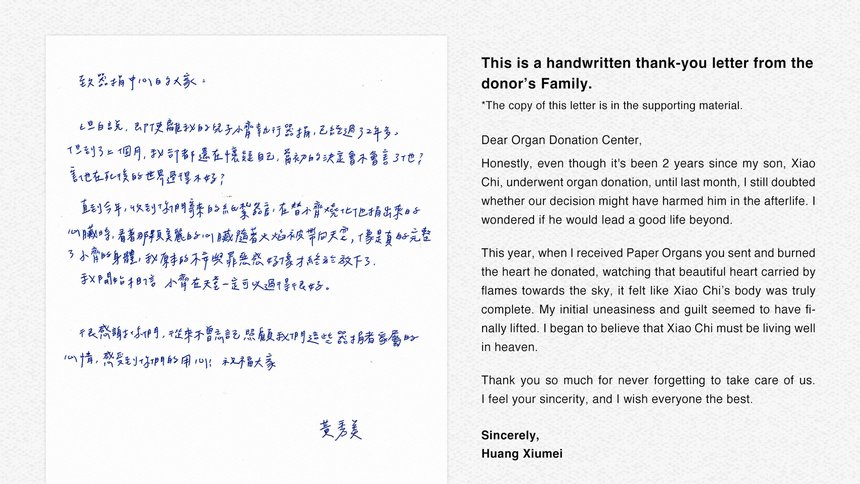 致器捐中心的大家:
坦白說,即使離我的兒子小齊執行器捐,已經過了2年多。
但到了上個月,我都還在懷疑自己,當初的決定會不會害了他?
害他在死後的世界過得不好?
直到今年,收到你們寄來的紙紮器官,在替小齊燒化他捐出來的
心臟時,看著那顆美麗的心臟隨著火焰被帶向天空,像是真的完整
了小齊的身體,我原本的不安與罪惡感好像才終於放下了.
我開始相信 小齊在天堂一定可以過得很好。
很感謝你們,從來不曾忘記照顧我們這些器捐者家屬的
心情,感受到你們的用心!祝福大家
黃秀美
This is a handwritten thank-you letter from the
donor's Family.
*The copy of this letter is in the supporting material.
Dear Organ Donation Center,
Honestly, even though it's been 2 years since my son, Xiao
Chi, underwent organ donation, until last month, I still doubted
whether our decision might have harmed him in the afterlife. I
wondered if he would lead a good life beyond.
This year, when I received Paper Organs you sent and burned
the heart he donated, watching that beautiful heart carried by
flames towards the sky, it felt like Xiao Chi's body was truly
complete. My initial uneasiness and guilt seemed to have fi-
nally lifted. I began to believe that Xiao Chi must be living well
in heaven.
Thank you so much for never forgetting to take care of us.
I feel your sincerity, and I wish everyone the best.
Sincerely,
Huang Xiumei